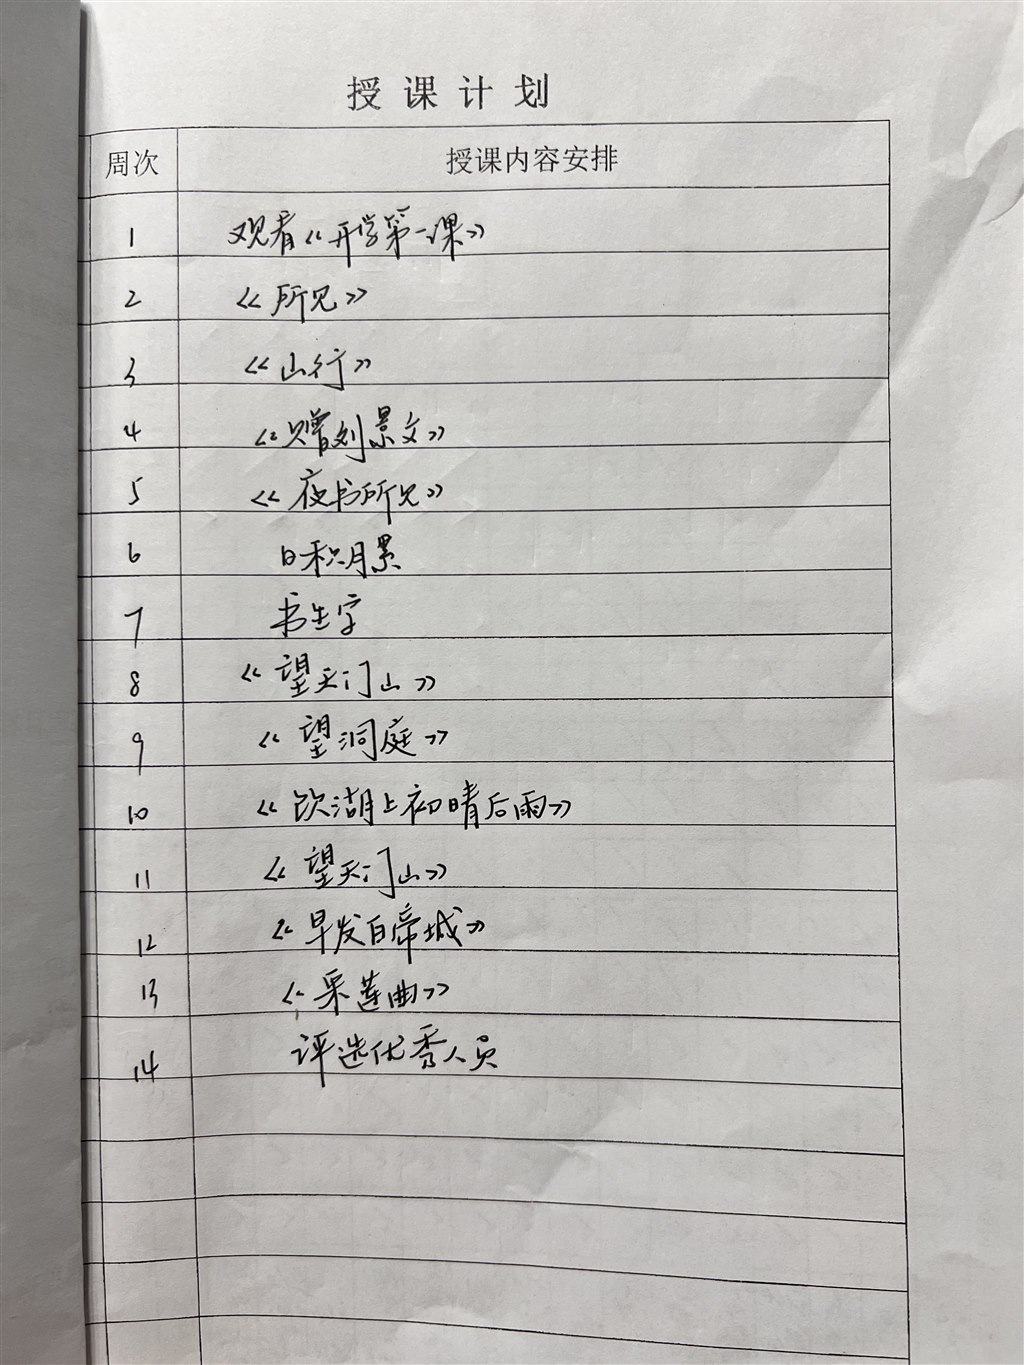 授课计划
周次 授课内容安排
1 观看《开学第一课》
2 《所见》
3 《山行》
4 《赠刘景文》
5 《夜书所见》
6 日积月累
7 书生字
8 《望天门山》
9 《望洞庭》
10 《饮湖上初晴后雨》
11 《望天门山》
12 《早发白帝城》
13 《采莲曲》
14 评选优秀人员